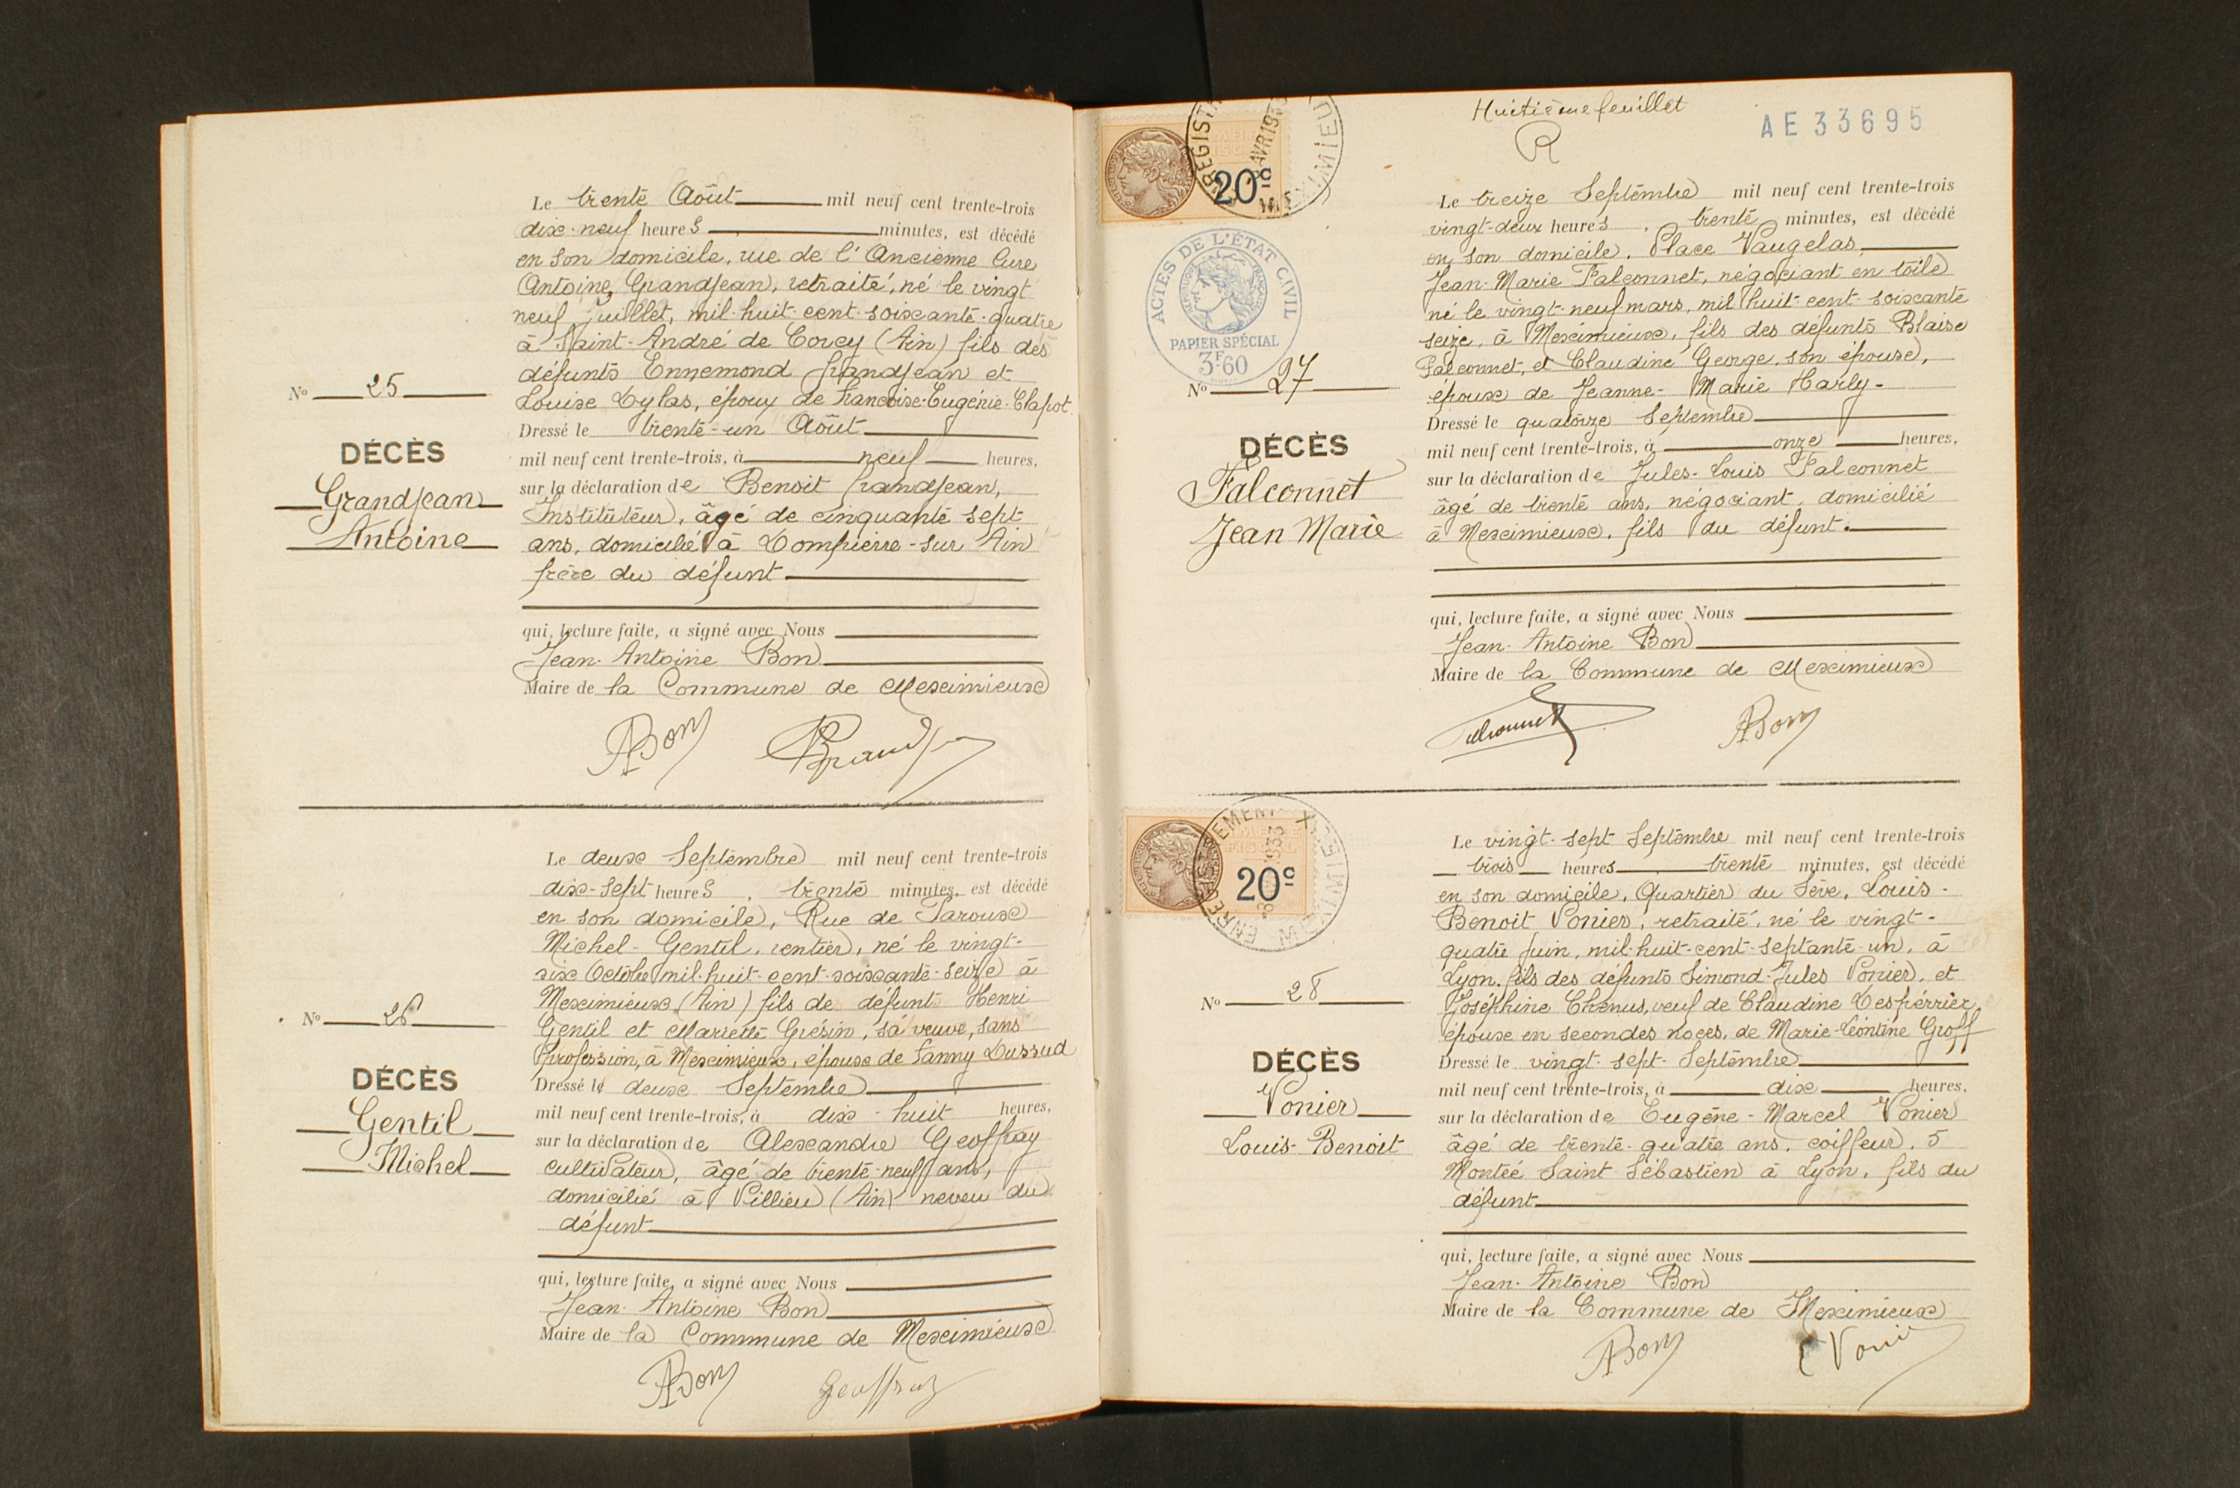 Le trente Août mil neuf cent trente-trois
dix-neuf heures minutes, est décédé
en son domicile, rue de l'Ancienne Cure
Antoine Grandjean, retraité, né le vingt
neuf juillet, mil-huit-cent-soixante-quatre
à Saint-André de Corcy (Ain) fils des
défunts Ennemond Grandjean et
Louise Cylas, époux de Françoise-Eugénie Clapot
Nº 25
DÉCÈS
Grandjean
Antoine
Dressé le trente-un Août
mil neuf cent trente-trois, à neuf heures,
sur la déclaration de Benoit Grandjean,
Instituteur, âgé de cinquante sept
ans, domicilié à Dompierre-sur Ain
frère du défunt
qui, lecture faite, a signé avec Nous
Jean-Antoine Bon
Maire de la Commune de Meximieux
ABon
Le deux Septembre mil neuf cent trente-trois
dix-sept heures, trente minutes, est décédé
en son domicile, Rue de Paroux
Michel Gentil, rentier, né le vingt-
six Octobre mil-huit-cent-soixante-seize à
Meximieux (Ain) fils de défunt Henri
Gentil et Mariette Guésin, sa veuve, sans
profession, à Meximieux, époux de Fanny Dussud
Nº 26
DÉCÈS
Gentil
Michel
Dressé le deux Septembre
mil neuf cent trente-trois, à dix-huit heures,
sur la déclaration de Alexandre Geoffray
cultivateur, âgé de trente-neuf ans,
domicilié à Villieu (Ain) neveu du
défunt
qui, lecture faite, a signé avec Nous
Jean-Antoine Bon
Maire de la Commune de Meximieux
ABon Geoffray
Huitième feuillet
AE33695
20c
ACTES DE L'ÉTAT CIVIL
PAPIER SPÉCIAL
3F60
Le treize Septembre mil neuf cent trente-trois
vingt-deux heures, trente minutes, est décédé
en son domicile, Place Vaugelas,
Jean-Marie Falconnet, négociant en toile
né le vingt-neuf mars, mil huit-cent-soixante
seize, à Meximieux, fils des défunts Blaise
Falconnet, et Claudine George, son épouse,
époux de Jeanne-Marie Harly-
Nº 27
DÉCÈS
Falconnet
Jean Marie
Dressé le quatorze Septembre
mil neuf cent trente-trois, à onze heures,
sur la déclaration de Jules-Louis Falconnet
âgé de trente ans, négociant, domicilié
à Meximieux, fils du défunt.
qui, lecture faite, a signé avec Nous
Jean-Antoine Bon
Maire de la Commune de Meximieux
Falconnet ABon
ENREGISTREMENT
MEXIMIEUX
1933
20c
Le vingt-sept Septembre mil neuf cent trente-trois
trois heures, trente minutes, est décédé
en son domicile, Quartier du Sève, Louis-
Benoit Vonier, retraité, né le vingt-
quatre Juin, mil-huit-cent-septante-un, à
Lyon, fils des défunts Simond-Jules Vonier, et
Joséphine Chenus, veuf de Claudine Despérrier,
époux en secondes noces, de Marie-Léontine Groff
Nº 28
DÉCÈS
Vonier
Louis-Benoit
Dressé le vingt-sept-Septembre
mil neuf cent trente-trois, à dix heures,
sur la déclaration de Eugène-Marcel Vonier
âgé de trente-quatre ans, coiffeur, 5
Montée Saint Sébastien à Lyon, fils du
défunt
qui, lecture faite, a signé avec Nous
Jean-Antoine Bon
Maire de la Commune de Meximieux
ABon Vonier